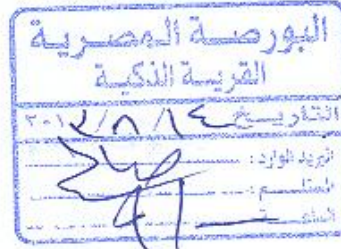 البورصة المصرية
القرية الذكية
التاريخ ١٤/٨/٢٠١٣
البريد الوارد :
المستلم :